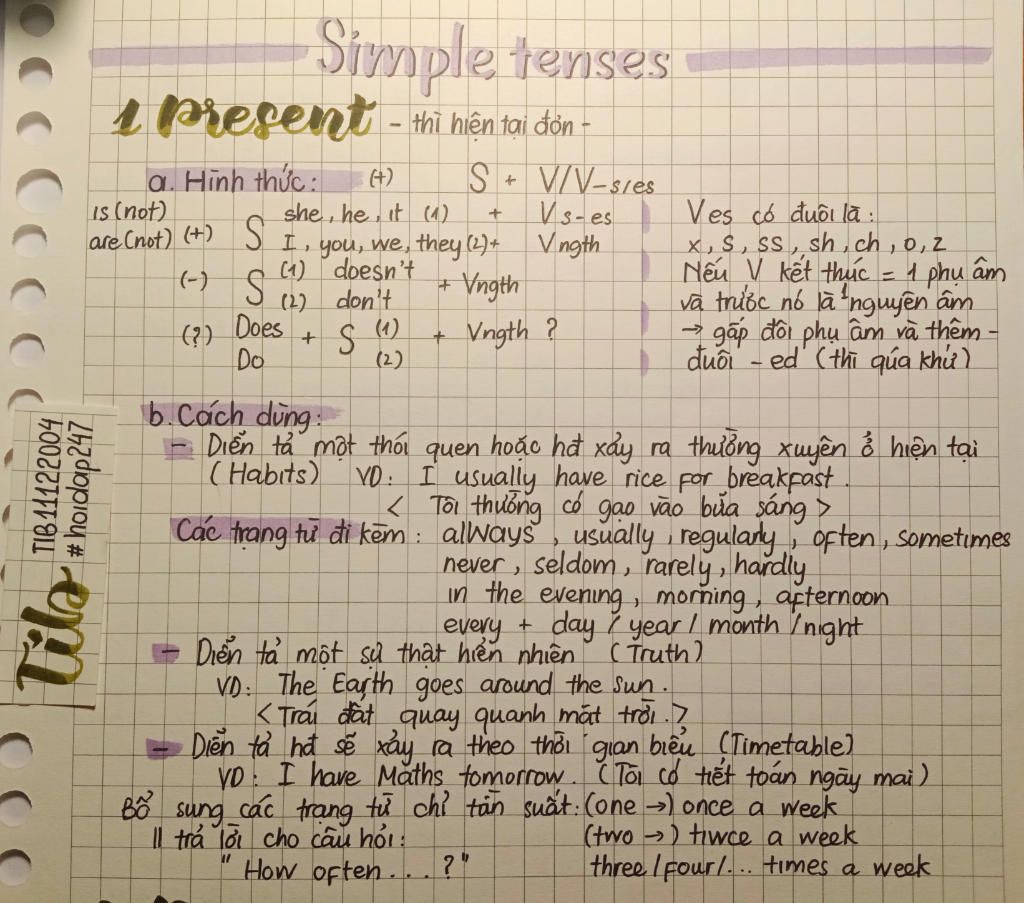 Simple tenses
1 Present - thì hiện tại đơn -
a. Hình thức: (+) S + V/V-s/es
is (not)
are (not)
(+) S she, he, it (1) + V s-es
I, you, we, they (2) + Vngth
(-) S (1) doesn't + Vngth
(2) don't
(?) Does + S (1) + Vngth ?
Do (2)
Ves có đuôi là:
x, s, ss, sh, ch, o, z
Nếu V kết thúc = 1 phụ âm
và trước nó là 1 nguyên âm
→ gấp đôi phụ âm và thêm -
đuôi -ed (thì qúa khứ)
b. Cách dùng:
- Diễn tả một thói quen hoặc hđ xảy ra thường xuyên ở hiện tại
(Habits) VD: I usually have rice for breakfast.
< Tôi thường có gạo vào bữa sáng >
Các trạng từ đi kèm: allways, usually, regularly, often, sometimes
never, seldom, rarely, hardly
in the evening, morning, afternoon
every + day / year / month / night
- Diễn tả một sự thật hiển nhiên (Truth)
VD: The Earth goes around the sun.
< Trái đất quay quanh mặt trời. >
- Diễn tả hđ sẽ xảy ra theo thời gian biểu (Timetable)
VD: I have Maths tomorrow. (Tôi có tiết toán ngày mai)
Bổ sung các trạng từ chỉ tần suất: (one →) once a week
|| trả lời cho câu hỏi: (two →) tiwce a week
"How often...?" three/four/... times a week
TIB11122004
#hoidap247
Tila